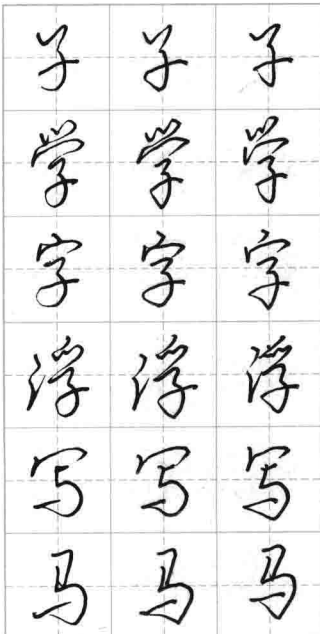 子 子 子
学 学 学
字 字 字
浮 浮 浮
写 写 写
马 马 马